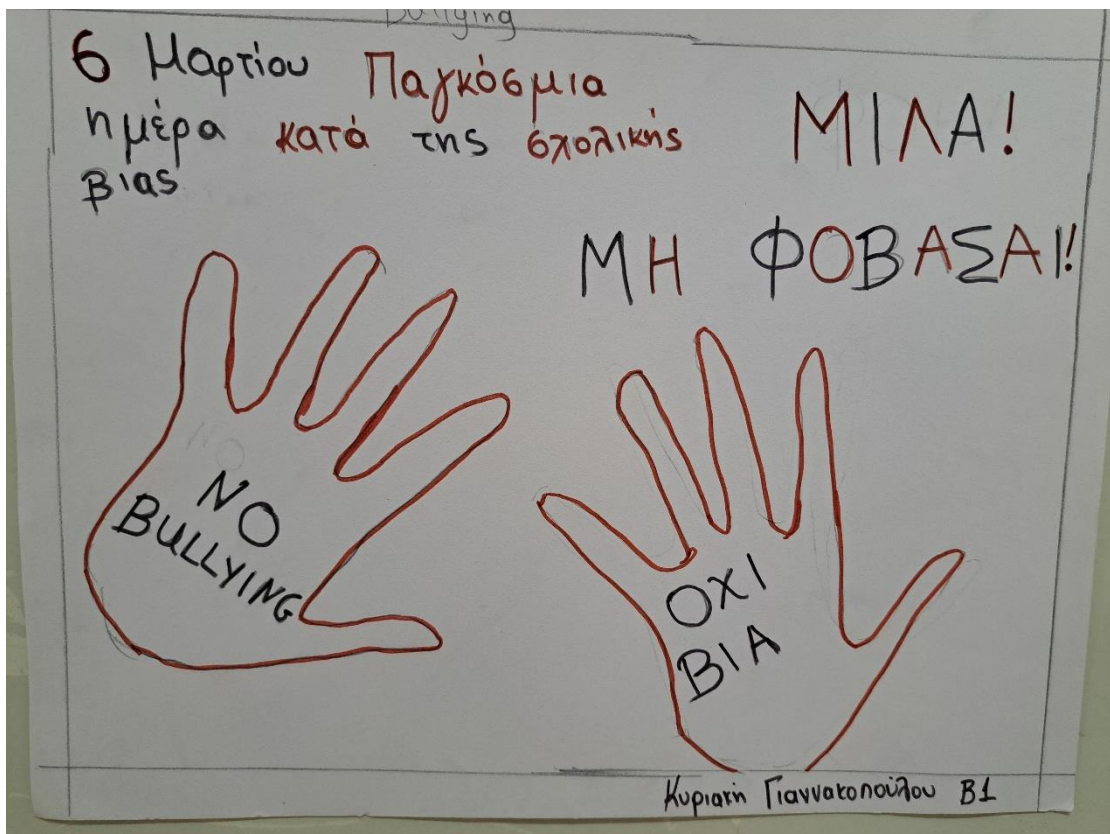 Bullying
6 Μαρτίου Παγκόσμια
ημέρα κατά της σχολικής
βιας
ΜΙΛΑ!
ΜΗ ΦΟΒΑΣΑΙ!
NO
BULLYING
ΟΧΙ
ΒΙΑ
Κυριακή Γιαννακοπούλου Β1